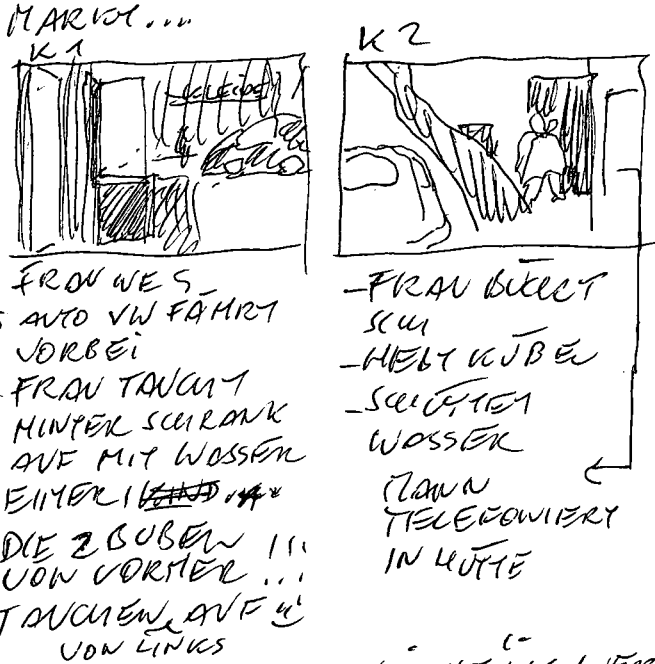 MARKT....
K 1
K 2
FRAU WEG
AUTO VW FÄHRT
VORBEI
FRAU TAUCHT
HINTER SCHRANK
AUF MIT WASSER
EIMER
DIE 2 BUBEN !!!
VON VORHER ...
TAUCHEN AUF
VON LINKS
-FRAU BÜCKT
SICH
-HEBT KÜBEL
-SCHÜTTET
WASSER
MANN
TELEFONIERT
IN HÜTTE